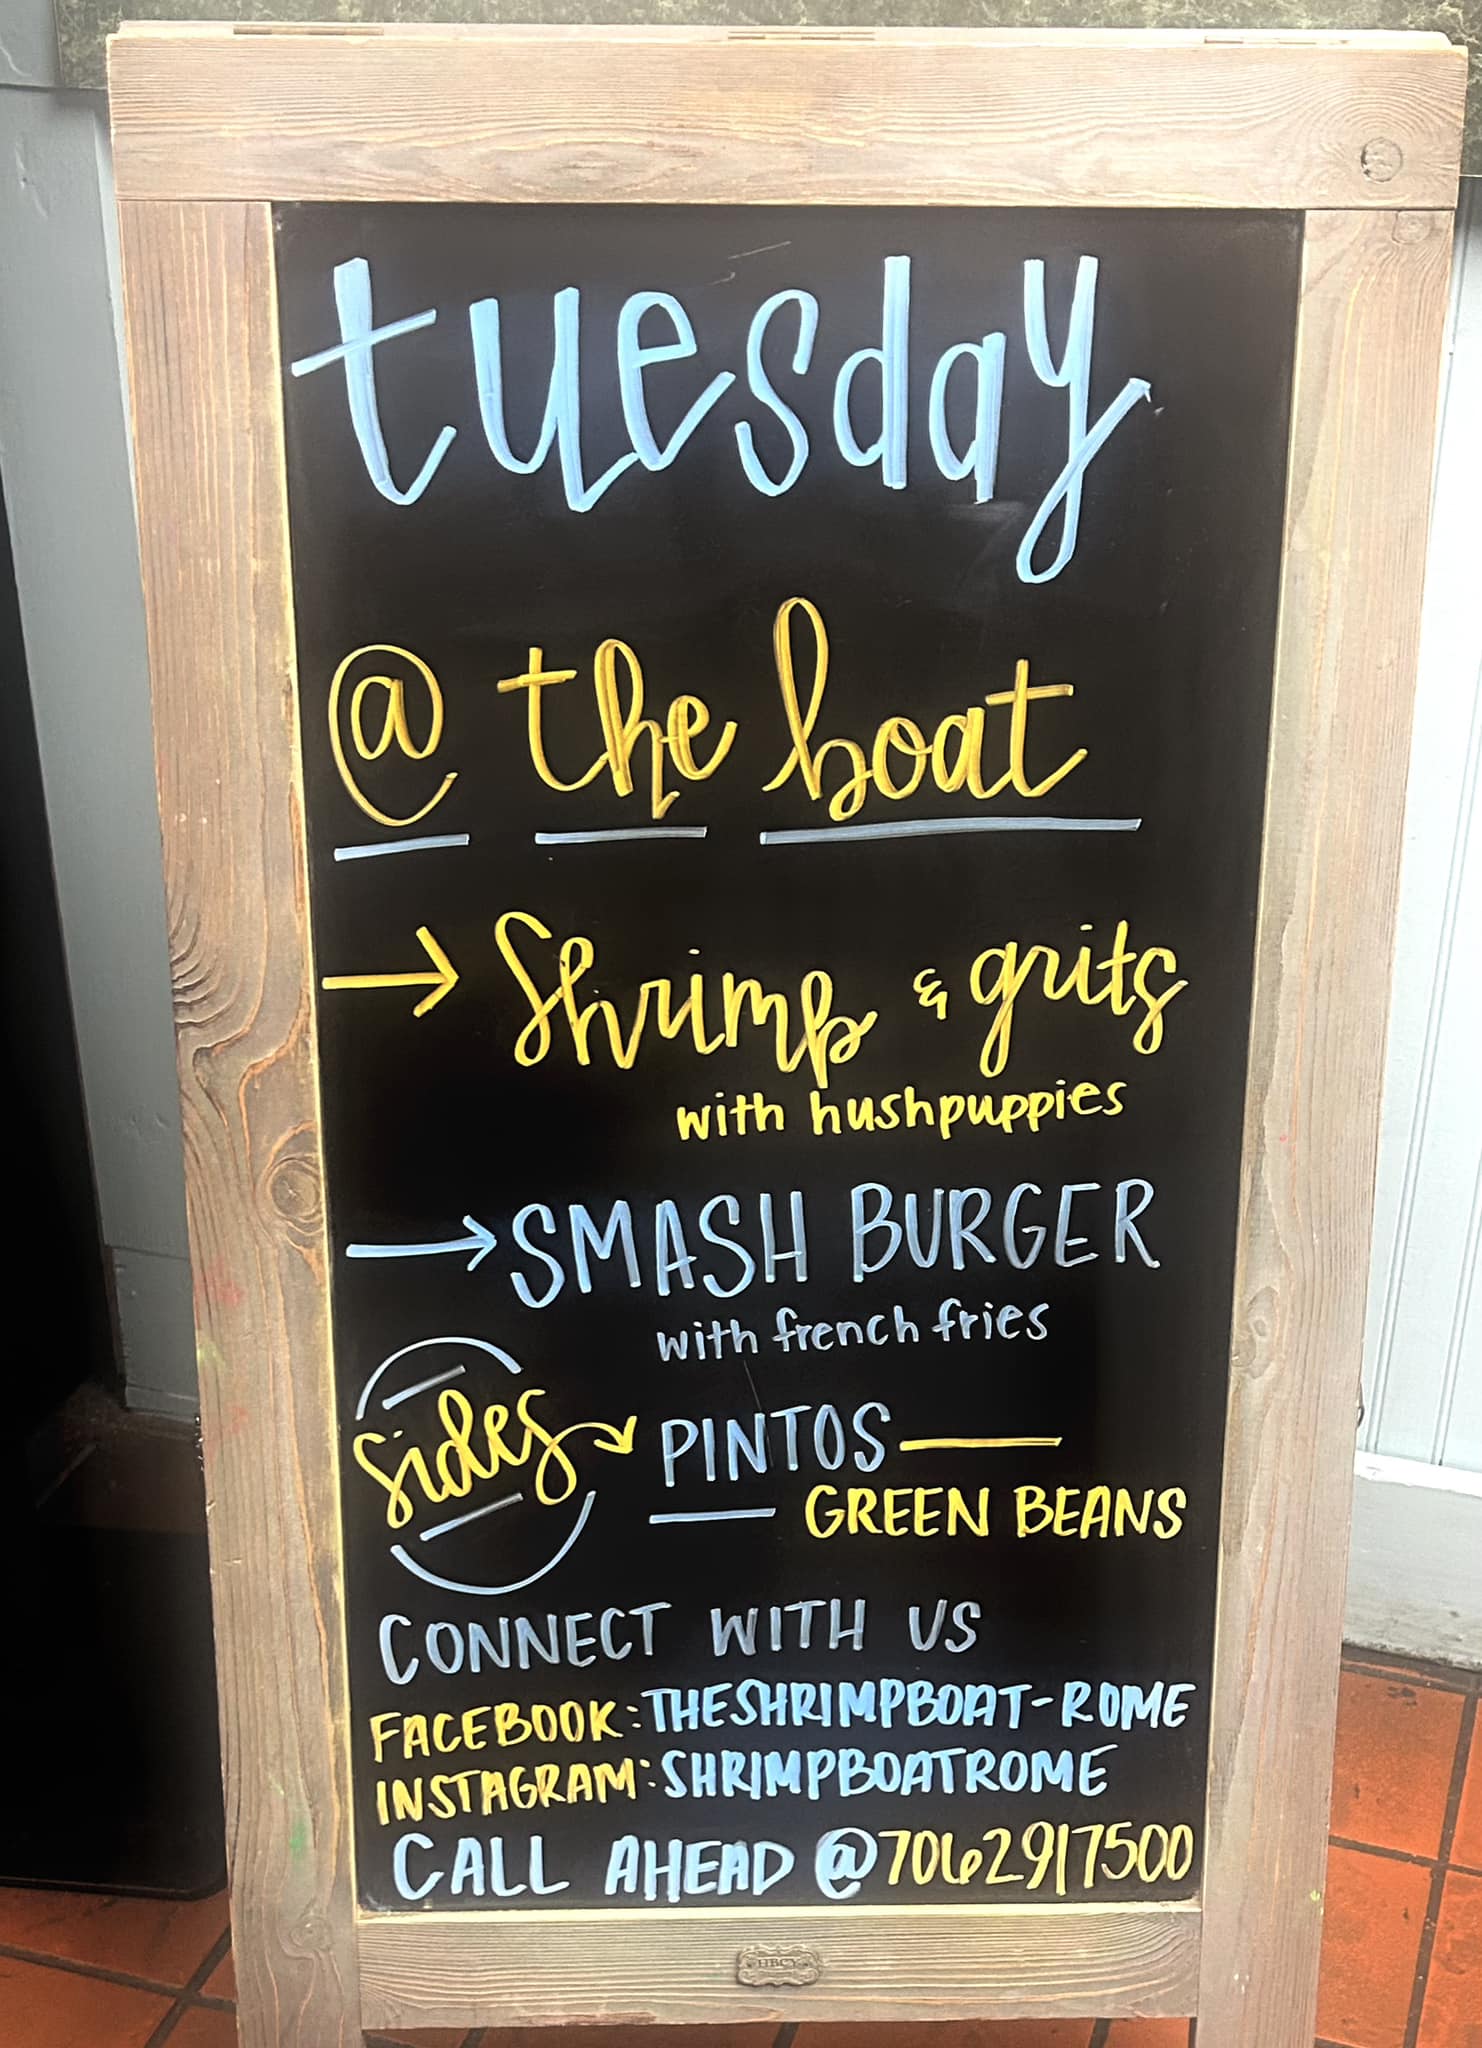 tuesday
@ the boat
→ Shrimp & grits
with hushpuppies
→ SMASH BURGER
with french fries
sides → PINTOS —
GREEN BEANS
CONNECT WITH US
FACEBOOK: THESHRIMPBOAT-ROME
INSTAGRAM: SHRIMPBOATROME
CALL AHEAD @7062917500
HBCY